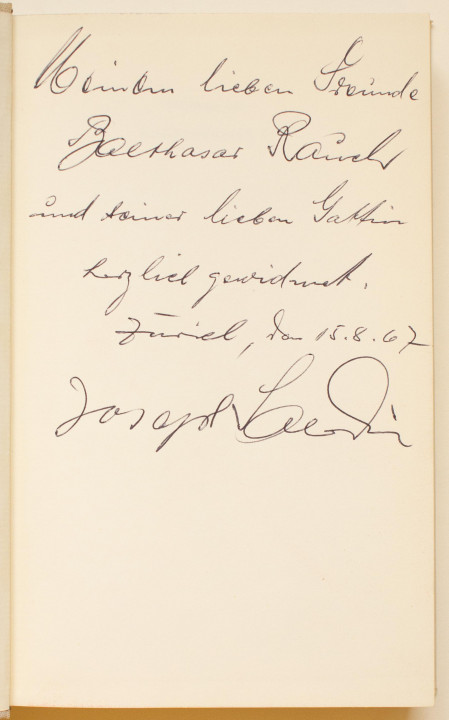 Meinem lieben Freunde
Balthasar Rauch
und seiner lieben Gattin
herzlich gewidmet.
Zürich, den 15.8.67
Joseph